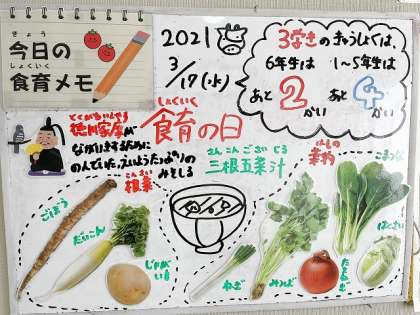 きょう
今日の
しょくいく
食育メモ
2021
3/17(水)
3学きのきゅうしょくは、
6年生は
1〜5年生は
あと2かい
あと4かい
とくがわいえやす
徳川家康が
ながいきするために
のんでいた、えいようたっぷりの
みそしる
しょくいく
食育の日
さんこんごさいじる
三根五菜汁
こんさい
根菜
ごぼう
だいこん
じゃがいも
はもの
葉物
こまつな
はくさい
ねぎ
みつば
たまねぎ